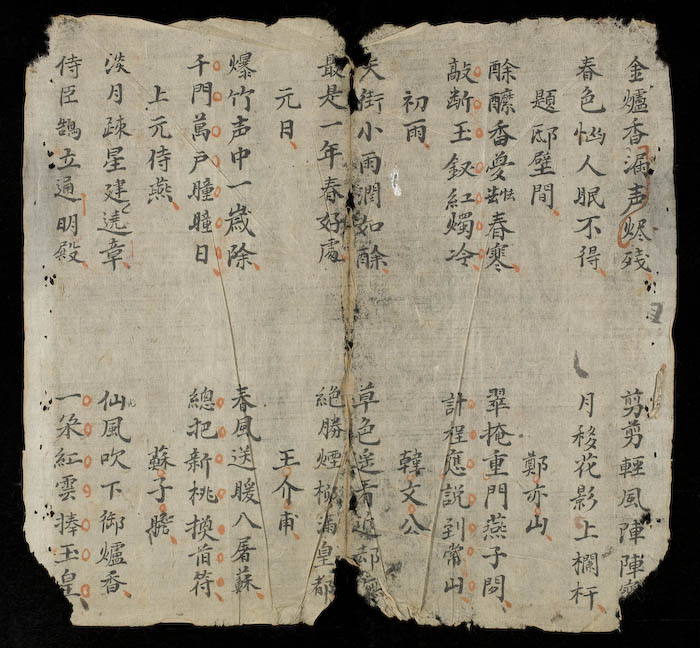 金爐香漏声烬残 剪剪輕風陣陣寒
春色惱人眠不得 月移花影上欄杆
題邸壁間 鄭亦山
酴醿香夢怯春寒 翠掩重門燕子閑
敲断玉釵紅燭冷 計程應説到常山
初雨 韓文公
天街小雨潤如酴 草色遥看近却無
最是一年春好處 絶勝煙柳满皇都
元日 王介甫
爆竹声中一歳除 春風送暖入屠蘇
千門萬户瞳瞳日 總把新桃換昔符
上元侍燕 蘇子瞻
淡月疎星建遶章 仙風吹下御爐香
侍臣鵠立通明殿 一朶紅雲捧玉皇